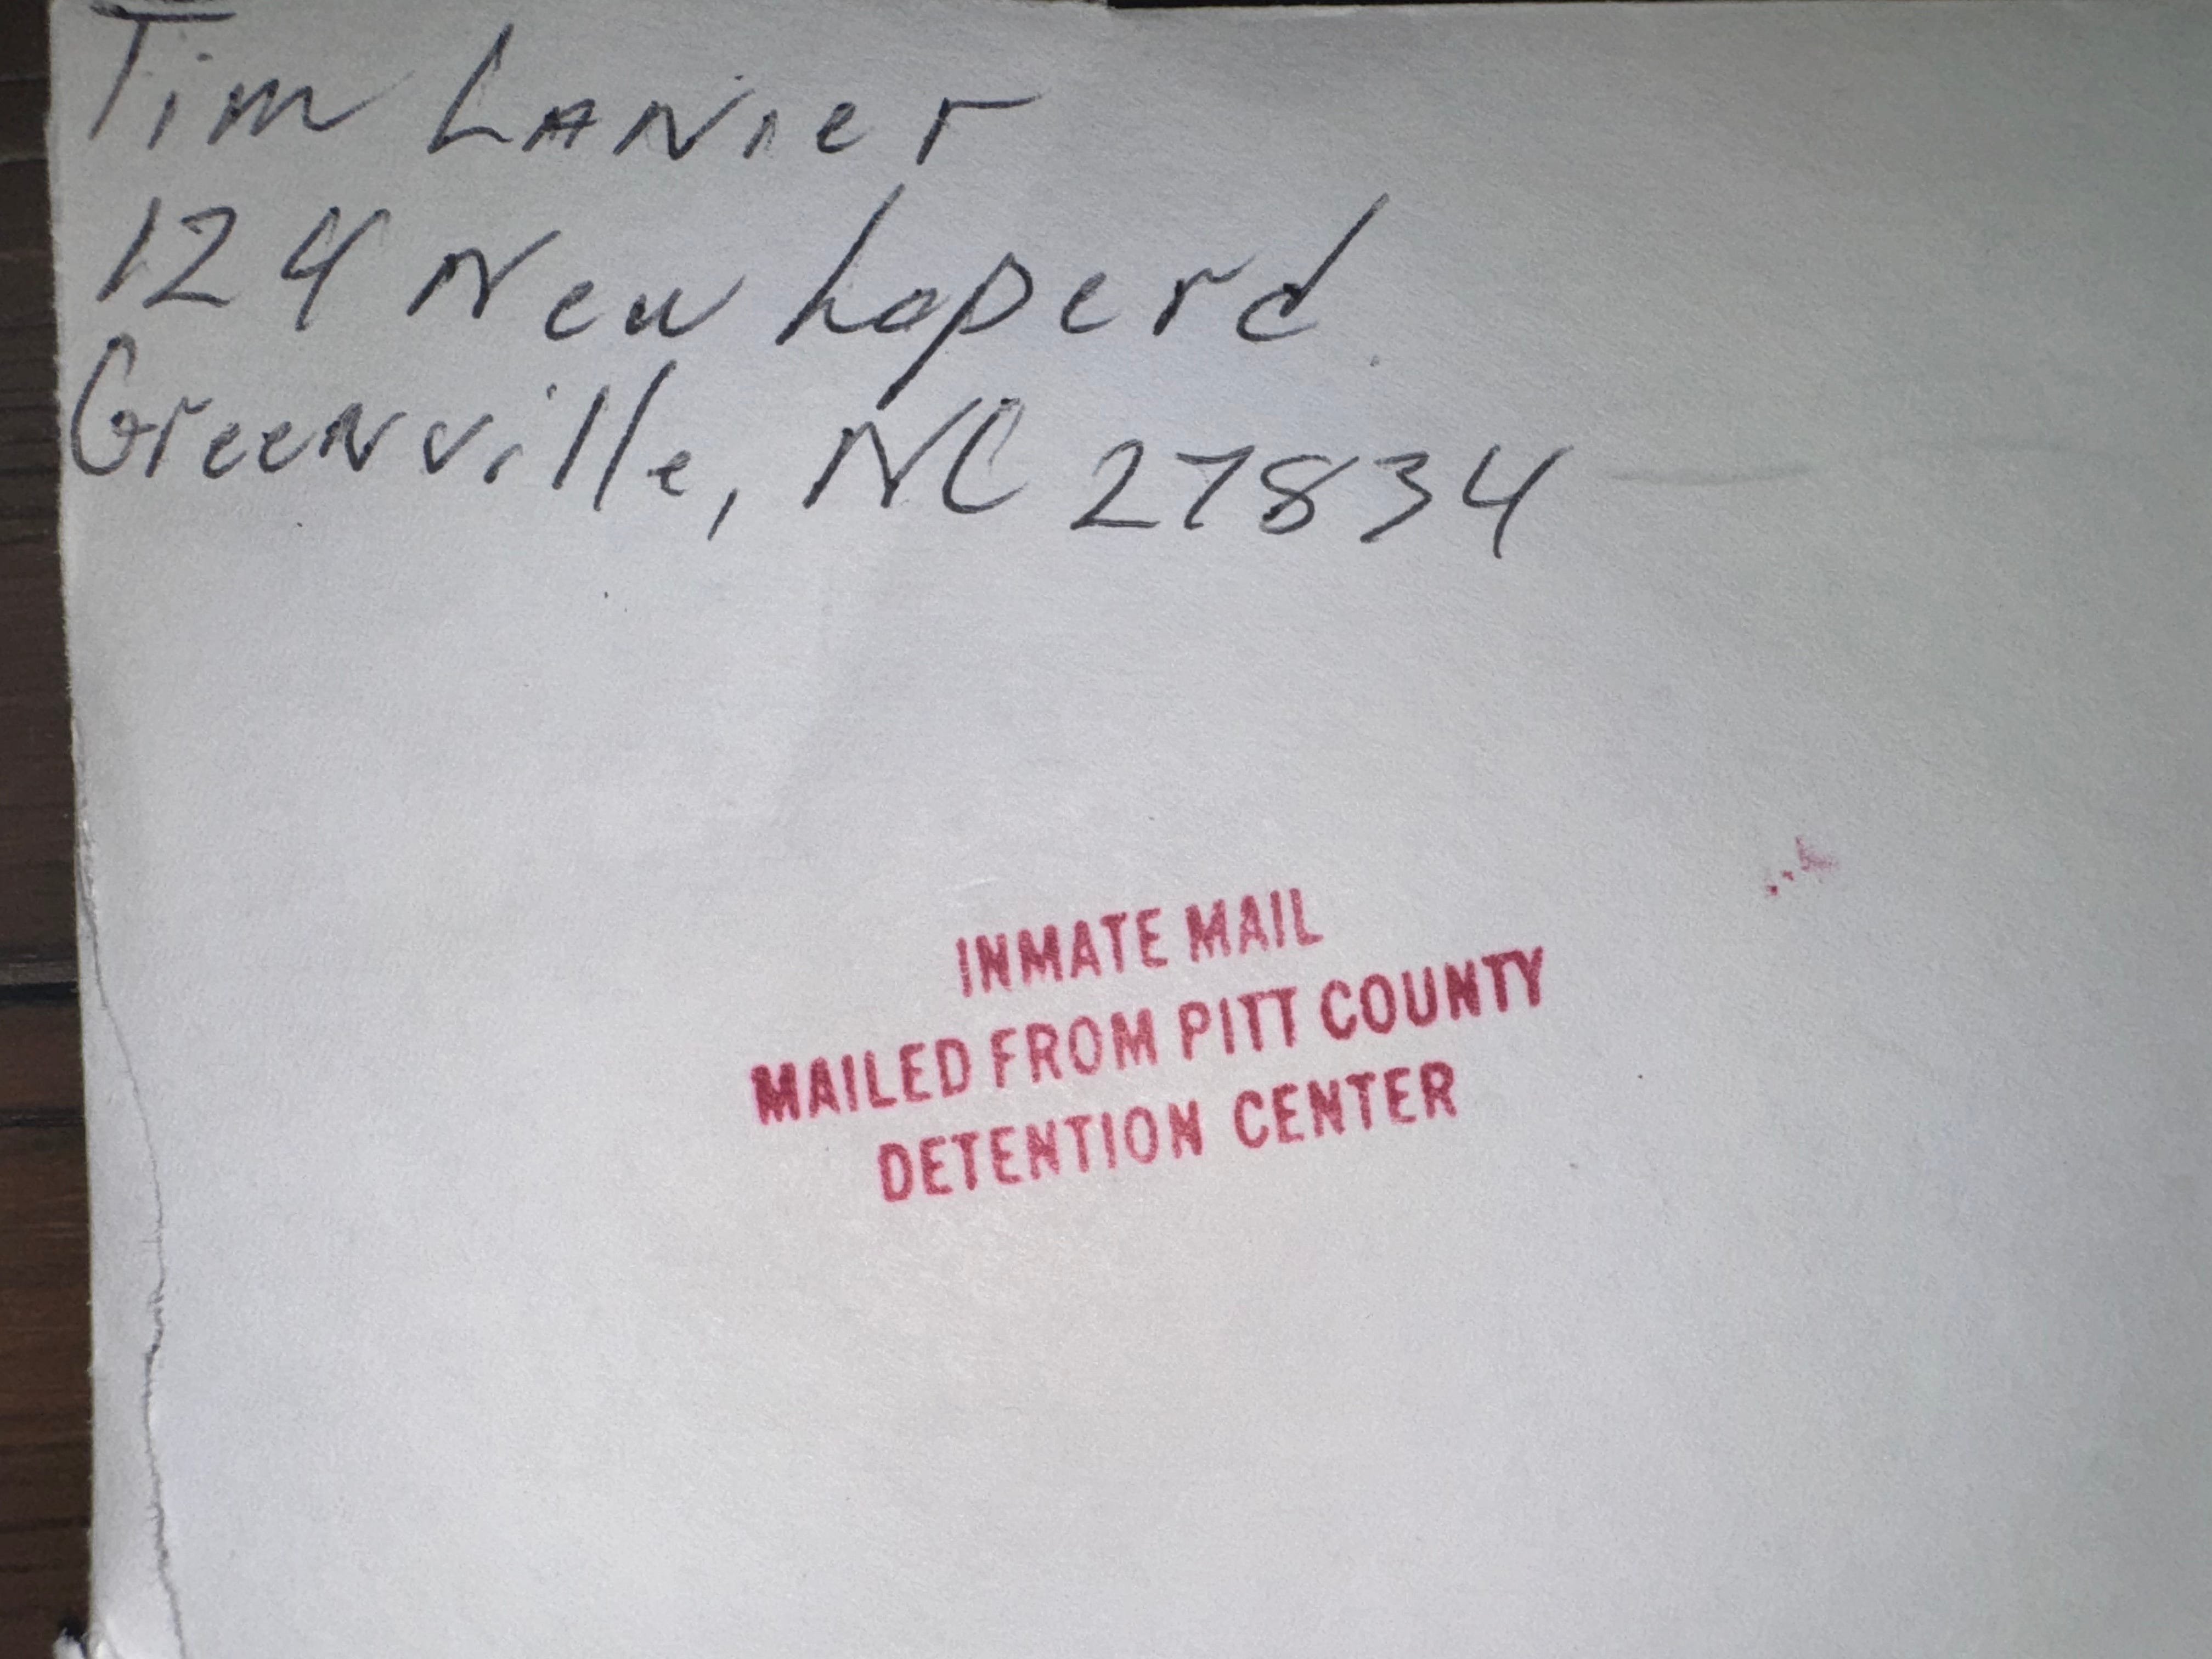 Tim LANier
124 New hope rd
GreenVille, NC 27834
INMATE MAIL
MAILED FROM PITT COUNTY
DETENTION CENTER